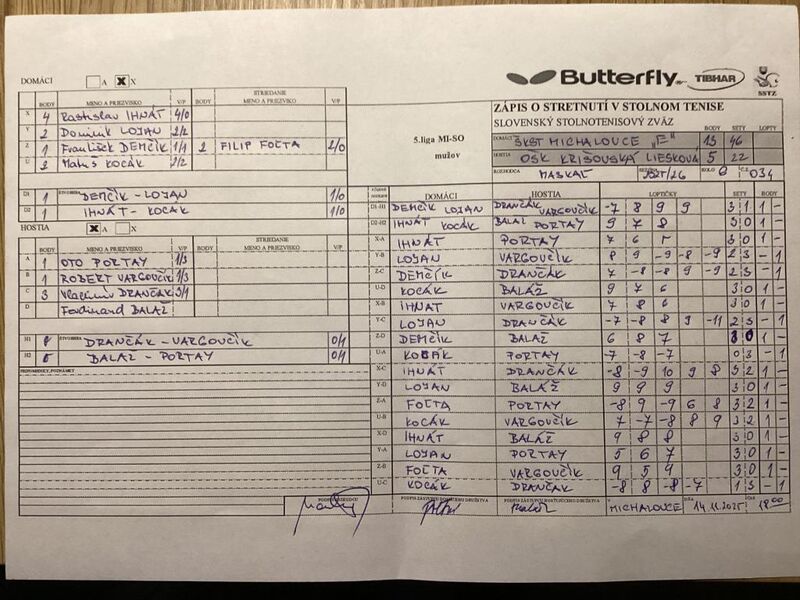 DOMÁCI A X X
Butterfly TIBHAR SSTZ
BODY MENO A PRIEZVISKO V/P BODY STRIEDANIE MENO A PRIEZVISKO V/P
X 4 Rastislav IHNÁT 4/0
Y 2 Dominik LOJAN 2/2
Z 1 František DEMČÍK 1/1 2 FILIP FOĽTA 2/0
U 2 Matúš KOCÁK 2/2
D1 1 ŠTVORHRA DEMČÍK - LOJAN 1/0
D2 1 IHNÁT - KOCÁK 1/0
HOSTIA X A X
BODY MENO A PRIEZVISKO V/P BODY STRIEDANIE MENO A PRIEZVISKO V/P
A 1 OTO PORTAY 1/3
B 1 ROBERT VARGOVČÍK 1/3
C 3 Vladimír DRANČÁK 3/1
D Ferdinand BALÁŽ
H1 ŠTVORHRA DRANČÁK - VARGOVČÍK 0/1
H2 BALÁŽ - PORTAY 0/1
PRIPOMIENKY, POZNÁMKY
5.liga MI-SO
mužov
ZÁPIS O STRETNUTÍ V STOLNOM TENISE
SLOVENSKÝ STOLNOTENISOVÝ ZVÄZ BODY SETY LOPTY
DOMÁCI ŠKST MICHALOVCE "E" 13 46
HOSTIA OŠK KRIŠOVSKÁ LIESKOVÁ 5 22
ROZHODCA MASKAĽ 2025/26 KOLO 6 Č.Z. 034
DOMÁCI HOSTIA LOPTIČKY SETY BODY
D1-H1 DEMČÍK LOJAN DRANČÁK VARGOVČÍK -7 8 9 9 3 1 1 -
D2-H2 IHNÁT KOCÁK BALÁŽ PORTAY 9 7 8 3 0 1 -
X-A IHNÁT PORTAY 7 6 5 3 0 1 -
Y-B LOJAN VARGOVČÍK 8 9 -9 -8 -9 2 3 - 1
Z-C DEMČÍK DRANČÁK 7 -8 -8 9 -9 2 3 - 1
U-D KOCÁK BALÁŽ 9 7 6 3 0 1 -
X-B IHNÁT VARGOVČÍK 7 8 6 3 0 1 -
Y-C LOJAN DRANČÁK -7 -8 8 9 -11 2 3 - 1
Z-D DEMČÍK BALÁŽ 6 8 7 3 0 1 -
U-A KOCÁK PORTAY -7 -8 -7 0 3 - 1
X-C IHNÁT DRANČÁK -8 -9 10 9 8 3 2 1 -
Y-D LOJAN BALÁŽ 9 9 9 3 0 1 -
Z-A FOĽTA PORTAY -8 9 -9 6 8 3 2 1 -
U-B KOCÁK VARGOVČÍK 7 -7 -8 8 9 3 2 1 -
X-D IHNÁT BALÁŽ 9 8 8 3 0 1 -
Y-A LOJAN PORTAY 5 6 7 3 0 1 -
Z-B FOĽTA VARGOVČÍK 9 5 9 3 0 1 -
U-C KOCÁK DRANČÁK -8 8 -8 -7 1 3 - 1
PODPIS ROZHODCU PODPIS ZÁSTUPCU DOMÁCEHO DRUŽSTVA PODPIS ZÁSTUPCU HOSŤUJÚCEHO DRUŽSTVA V MICHALOVCE DŇA 14.11.2025 ČAS 18:00